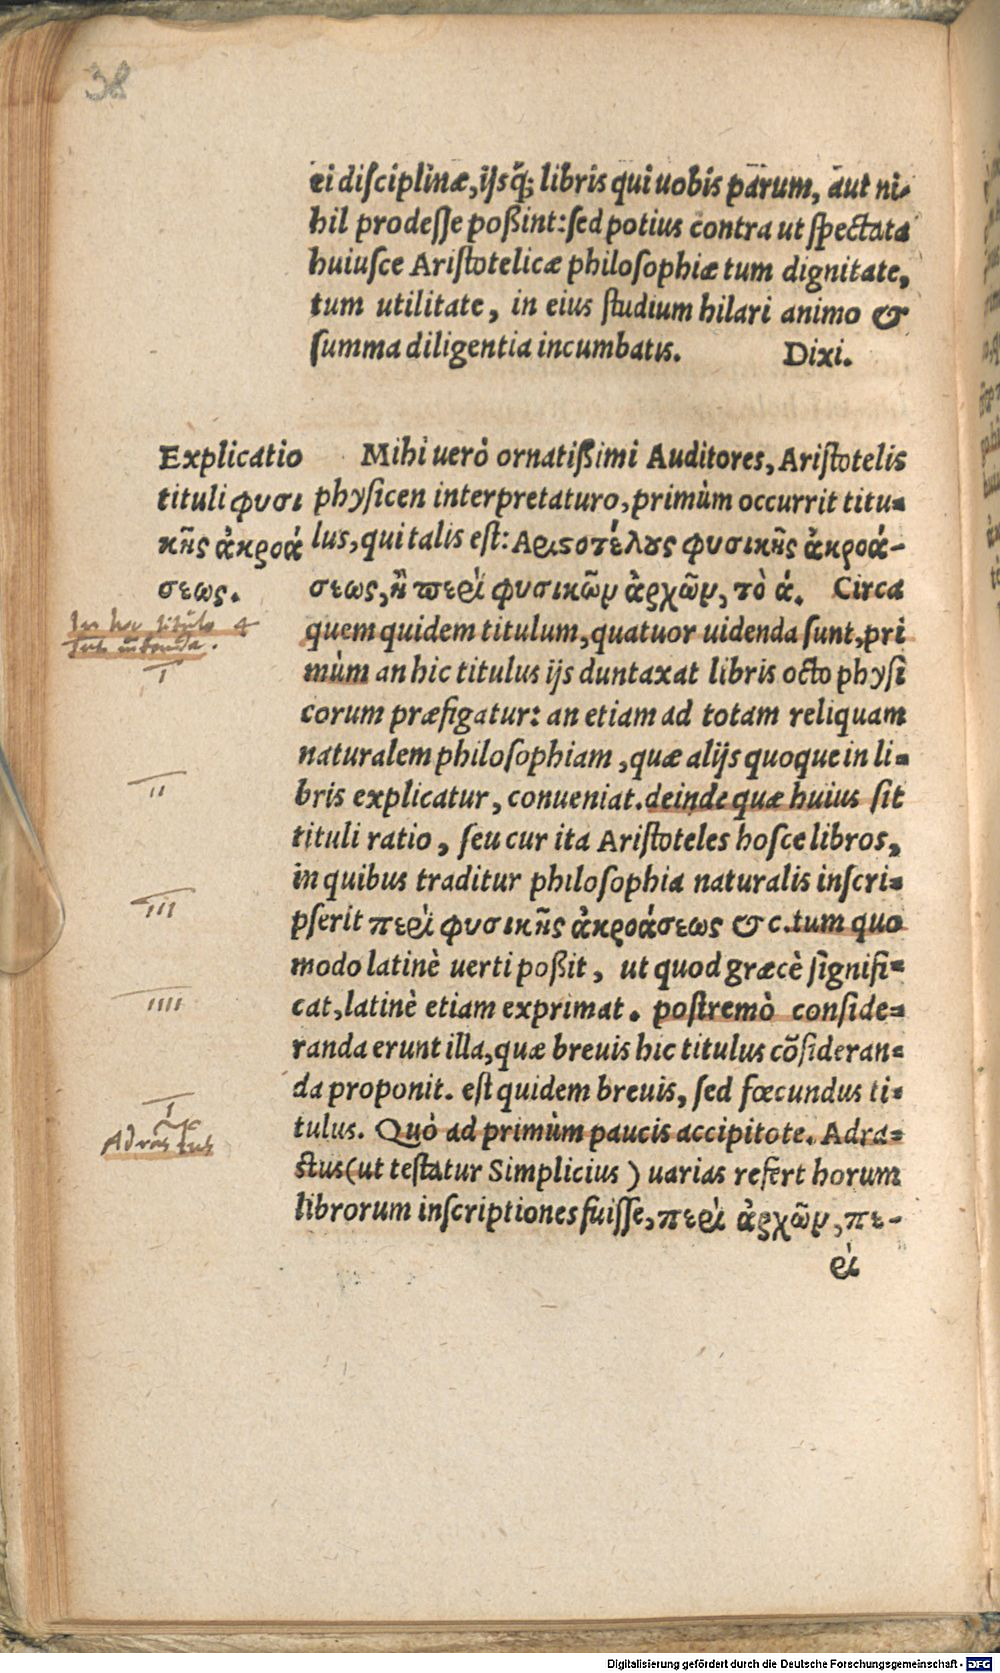 38
ei disciplinæ, ijsq́; libris qui uobis parum, aut ni-
hil prodesse poßint: sed potius contra ut spectata
huiusce Aristotelicæ philosophiæ tum dignitate,
tum utilitate, in eius studium hilari animo &
summa diligentia incumbatis. Dixi.
Explicatio
tituli φυσι
κῆς ἀκροά
σεως.
In hoc titulo 4
I
II
III
IIII
I
Adrastus
Mihi uerò ornatißimi Auditores, Aristotelis
physicen interpretaturo, primùm occurrit titu-
lus, qui talis est: Αριστέλους φυσικῆς ἀκροά-
σεως, ἢ περὶ φυσικῶν ἀρχῶν, τὸ ά. Circa
quem quidem titulum, quatuor uidenda sunt, pri
mùm an hic titulus ijs duntaxat libris octo physi
corum præfigatur: an etiam ad totam reliquam
naturalem philosophiam, quæ alijs quoque in li-
bris explicatur, conueniat. deinde quæ huius sit
tituli ratio, seu cur ita Aristoteles hosce libros,
in quibus traditur philosophia naturalis inscri-
pserit περὶ φυσικῆς ἀκροάσεως &c. tum quo
modo latinè uerti poßit, ut quod græcè signifi-
cat, latinè etiam exprimat. postremò conside-
randa erunt illa, quæ breuis hic titulus cõsideran-
da proponit. est quidem breuis, sed fœcundus ti-
tulus. Quò ad primùm paucis accipitote. Adra-
ctus (ut testatur Simplicius) uarias refert horum
librorum inscriptiones fuisse, περὶ ἀρχῶν, πε-
ρὶ
Digitalisierung gefördert durch die Deutsche Forschungsgemeinschaft - DFG